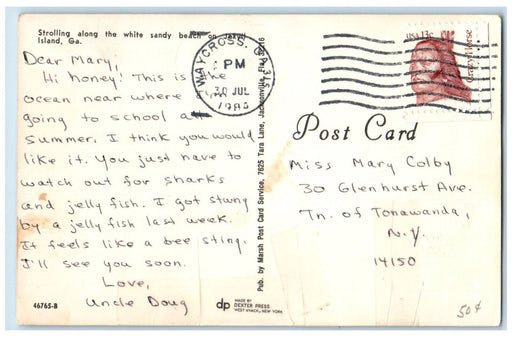 Strolling along the white sandy beach on Jekyll
Island, Ga.
Dear Mary,
Hi honey! This is the
ocean near where
going to school
summer. I think you would
like it. You just have to
watch out for sharks
and jelly fish. I got stung
by a jelly fish last week.
It feels like a bee sting.
I'll see you soon.
Love,
Uncle Doug
46765-B
WAYCROSS, GA 315
PM
30 JUL
USA 13c
Crazy Horse
Pub. by Marsh Post Card Service, 7625 Tara Lane, Jacksonville, Fla. 32216
dp MADE BY
DEXTER PRESS
WEST NYACK, NEW YORK
Post Card
Miss Mary Colby
30 Glenhurst Ave.
Tn. of Tonawanda,
N.Y.
14150
50¢